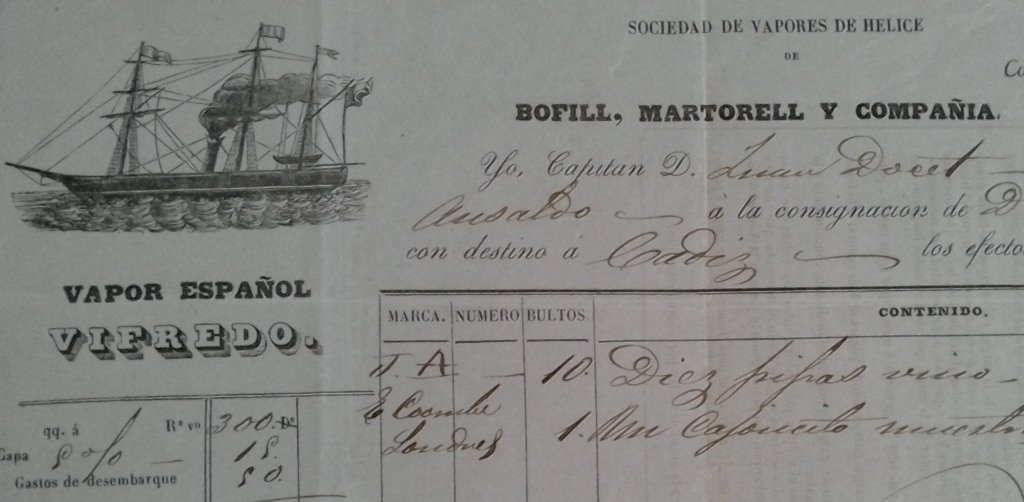 SOCIEDAD DE VAPORES DE HELICE
DE
Co
BOFILL, MARTORELL Y COMPAÑIA.
Yo, Capitan D. Juan Docet
Ansaldo á la consignacion de D
con destino á Cadiz los efecto
VAPOR ESPAÑOL
VIFREDO.
MARCA. NUMERO BULTOS. CONTENIDO.
T. A 10. Diez pipas vino
E Coombe
Londres 1. Un cajoncito muestr
qq. á Rs. vn 300. Ds.
Capa 5 o/o 15.
Gastos de desembarque 50.